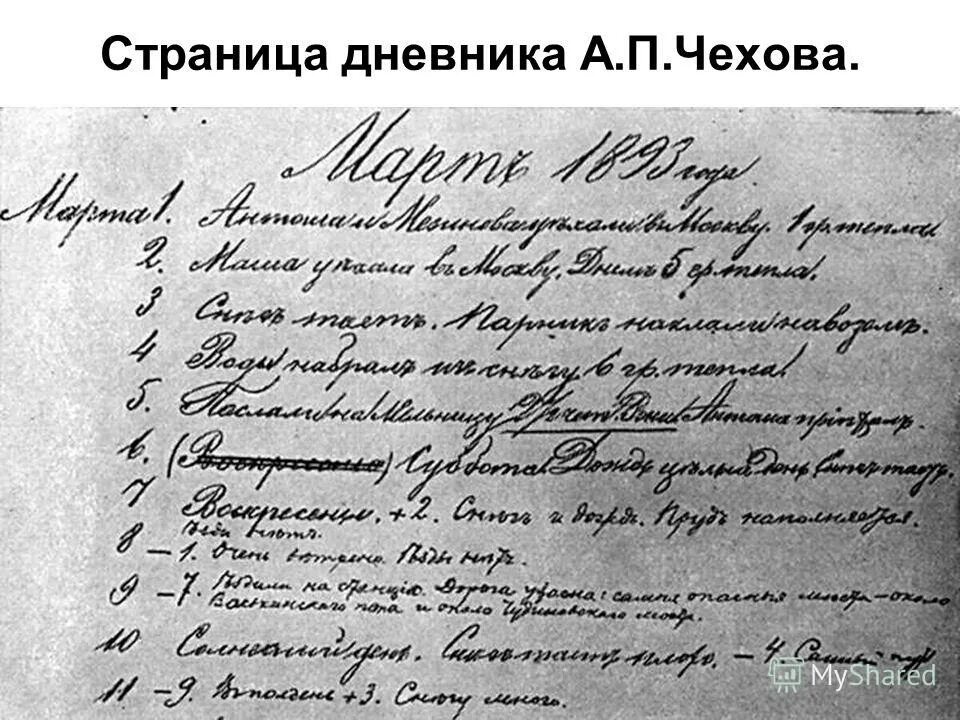 Страница дневника А.П.Чехова.
Мартъ 1893 года.
Марта 1. Антоша и Мизинова уѣхали въ Москву. 1 гр. тепла.
2. Маша уѣхала въ Москву. Днемъ 5 гр. тепла.
3 Снѣгъ таетъ. Парникъ наклали навозомъ.
4 Воды набралъ изъ снѣгу 6 гр. тепла.
5. Послали на мельницу Антоша пріѣхалъ.
6. (Воскресенье) Суббота. Дождь цѣлый день. Снѣгъ таетъ.
7 Воскресенье. +2. Снѣгъ и дождь. Прудъ наполняется.
Ѣзды нѣтъ.
8 – 1. Очень вѣтрено. Ѣзды нѣтъ.
9 – 7. Ѣздили на станцію. Дорога ужасна: самыя опасныя мѣста – около
Васькинского попа и около Чудиновскаго моста.
10 Солнечный день. Снѣгъ таетъ плохо. – 4
11 – 9. В полдень + 3. Снѣгу много.
MyShared